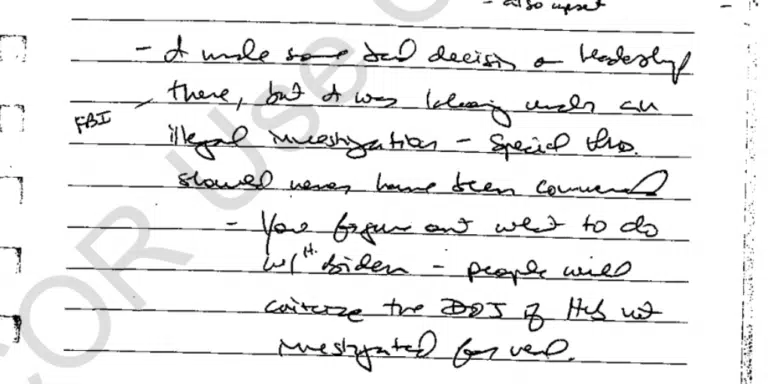 - also upset
- I made some bad decisions on leadership
there, but I was laboring under an
FBI
illegal investigation - Special Pros.
should never have been commenced
- You figure out what to do
w/ H. Biden - people will
criticize the DOJ if He's not
investigated for real.
OR Use